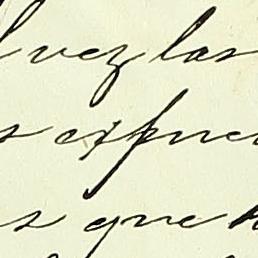 l vez las
s espue
s que